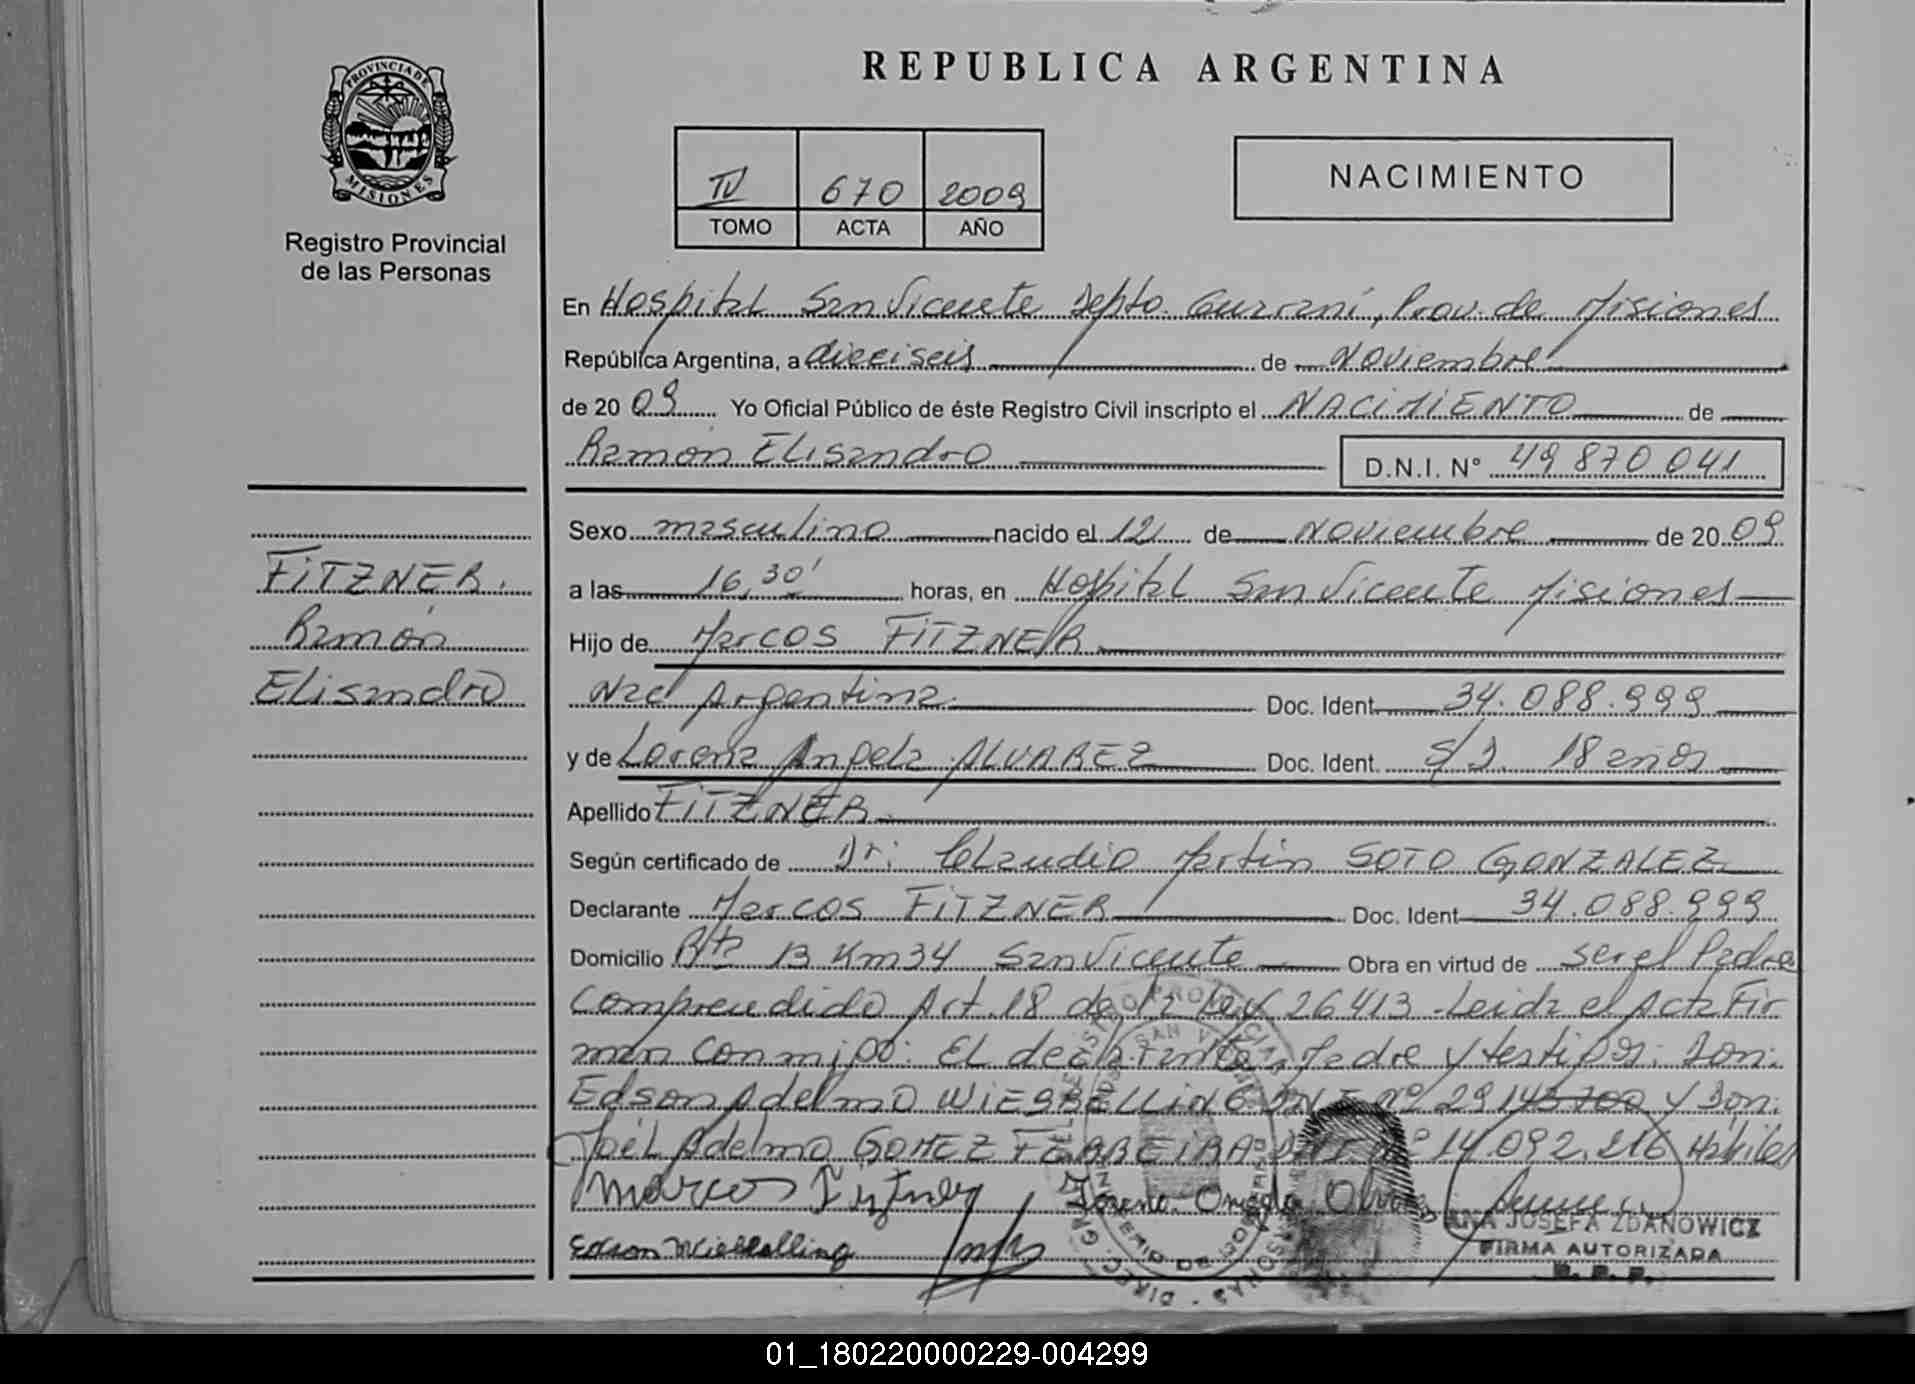 REPUBLICA ARGENTINA
PROVINCIA DE
MISIONES
Registro Provincial
de las Personas
IV 670 2009
TOMO ACTA AÑO
NACIMIENTO
En Hospital San Vicente Depto. Guarani, Prov. de Misiones
República Argentina, a dieciseis de Noviembre
de 20 09 Yo Oficial Público de éste Registro Civil inscripto el NACIMIENTO de
Ramón Elisandro D.N.I. Nº 49 870 041
Sexo masculino nacido el 12 de Noviembre de 20 09
a las 16,30' horas, en Hospital San Vicente Misiones
Hijo de Marcos FITZNER
Nac Argentina Doc. Ident. 34.088.999
y de Lorena Angela ALVAREZ Doc. Ident. S/D. 18 años
Apellido FITZNER
Según certificado de Dr: Claudio Martin SOTO GONZALEZ
Declarante Marcos FITZNER Doc. Ident 34.088.999
Domicilio Rta 13 Km 34 San Vicente Obra en virtud de ser el Padre
Comprendido Art. 18 de la Ley 26413 - Leida el Acta Fir
man conmigo: El declarante, Madre y testigos: Don:
Edson Adelmo WIESBELLING DNI nº 29 143 700 y Don:
Joél Adelmo GOMEZ FERREIRA DNI nº 14 092.216 Habiles
Marcos Fitzner Lorena Angela Alvarez
Edson Wiesbelling
ANA JOSEFA ZDANOWICZ
FIRMA AUTORIZADA
R. P. P.
FITZNER.
Ramón
Elisandro
01_180220000229-004299